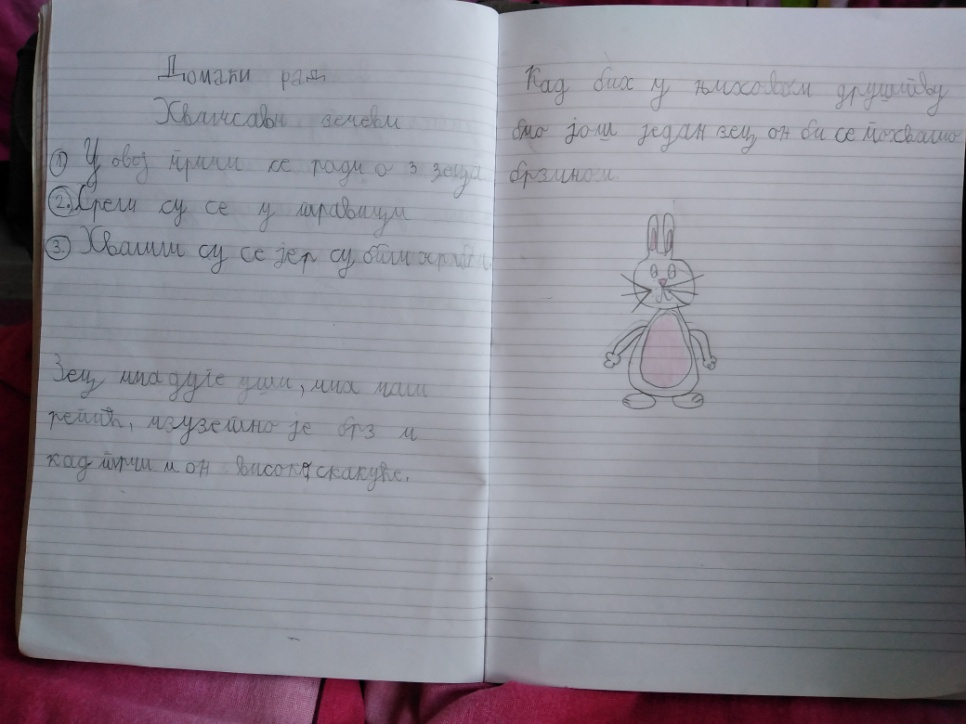 Домаћи рад
Хвалисави зечеви
① У овој причи се ради о 3 зеца
②. Срели су се у травици
③. Хвалили су се јер су били
Зец има дуге уши, има мали
репић, изузетно је брз и
кад трчи и он високо скакуће.
Кад бих у њиховом друштву
био још један зец он би се похвалио
брзином.